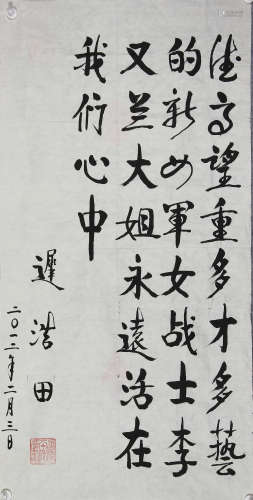 德高望重多才多藝
的新四軍女战士李
又兰大姐永遠活在
我们心中
遲浩田
二〇一二年二月三日